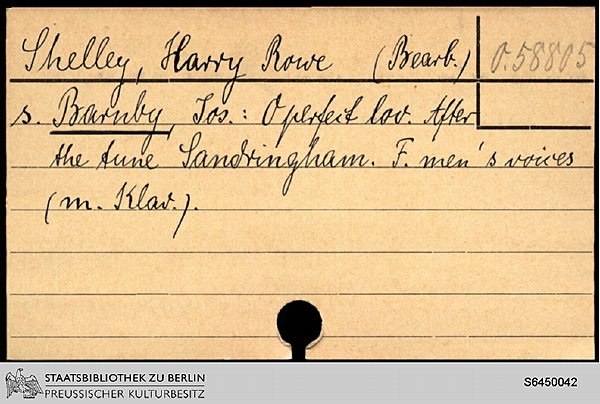 Shelley, Harry Rowe (Bearb.) O.58805
s. Barnby, Jos.: O perfect lov. After
the tune Sandringham. F. men's voices
(m. Klav.).
STAATSBIBLIOTHEK ZU BERLIN
PREUSSISCHER KULTURBESITZ
S6450042